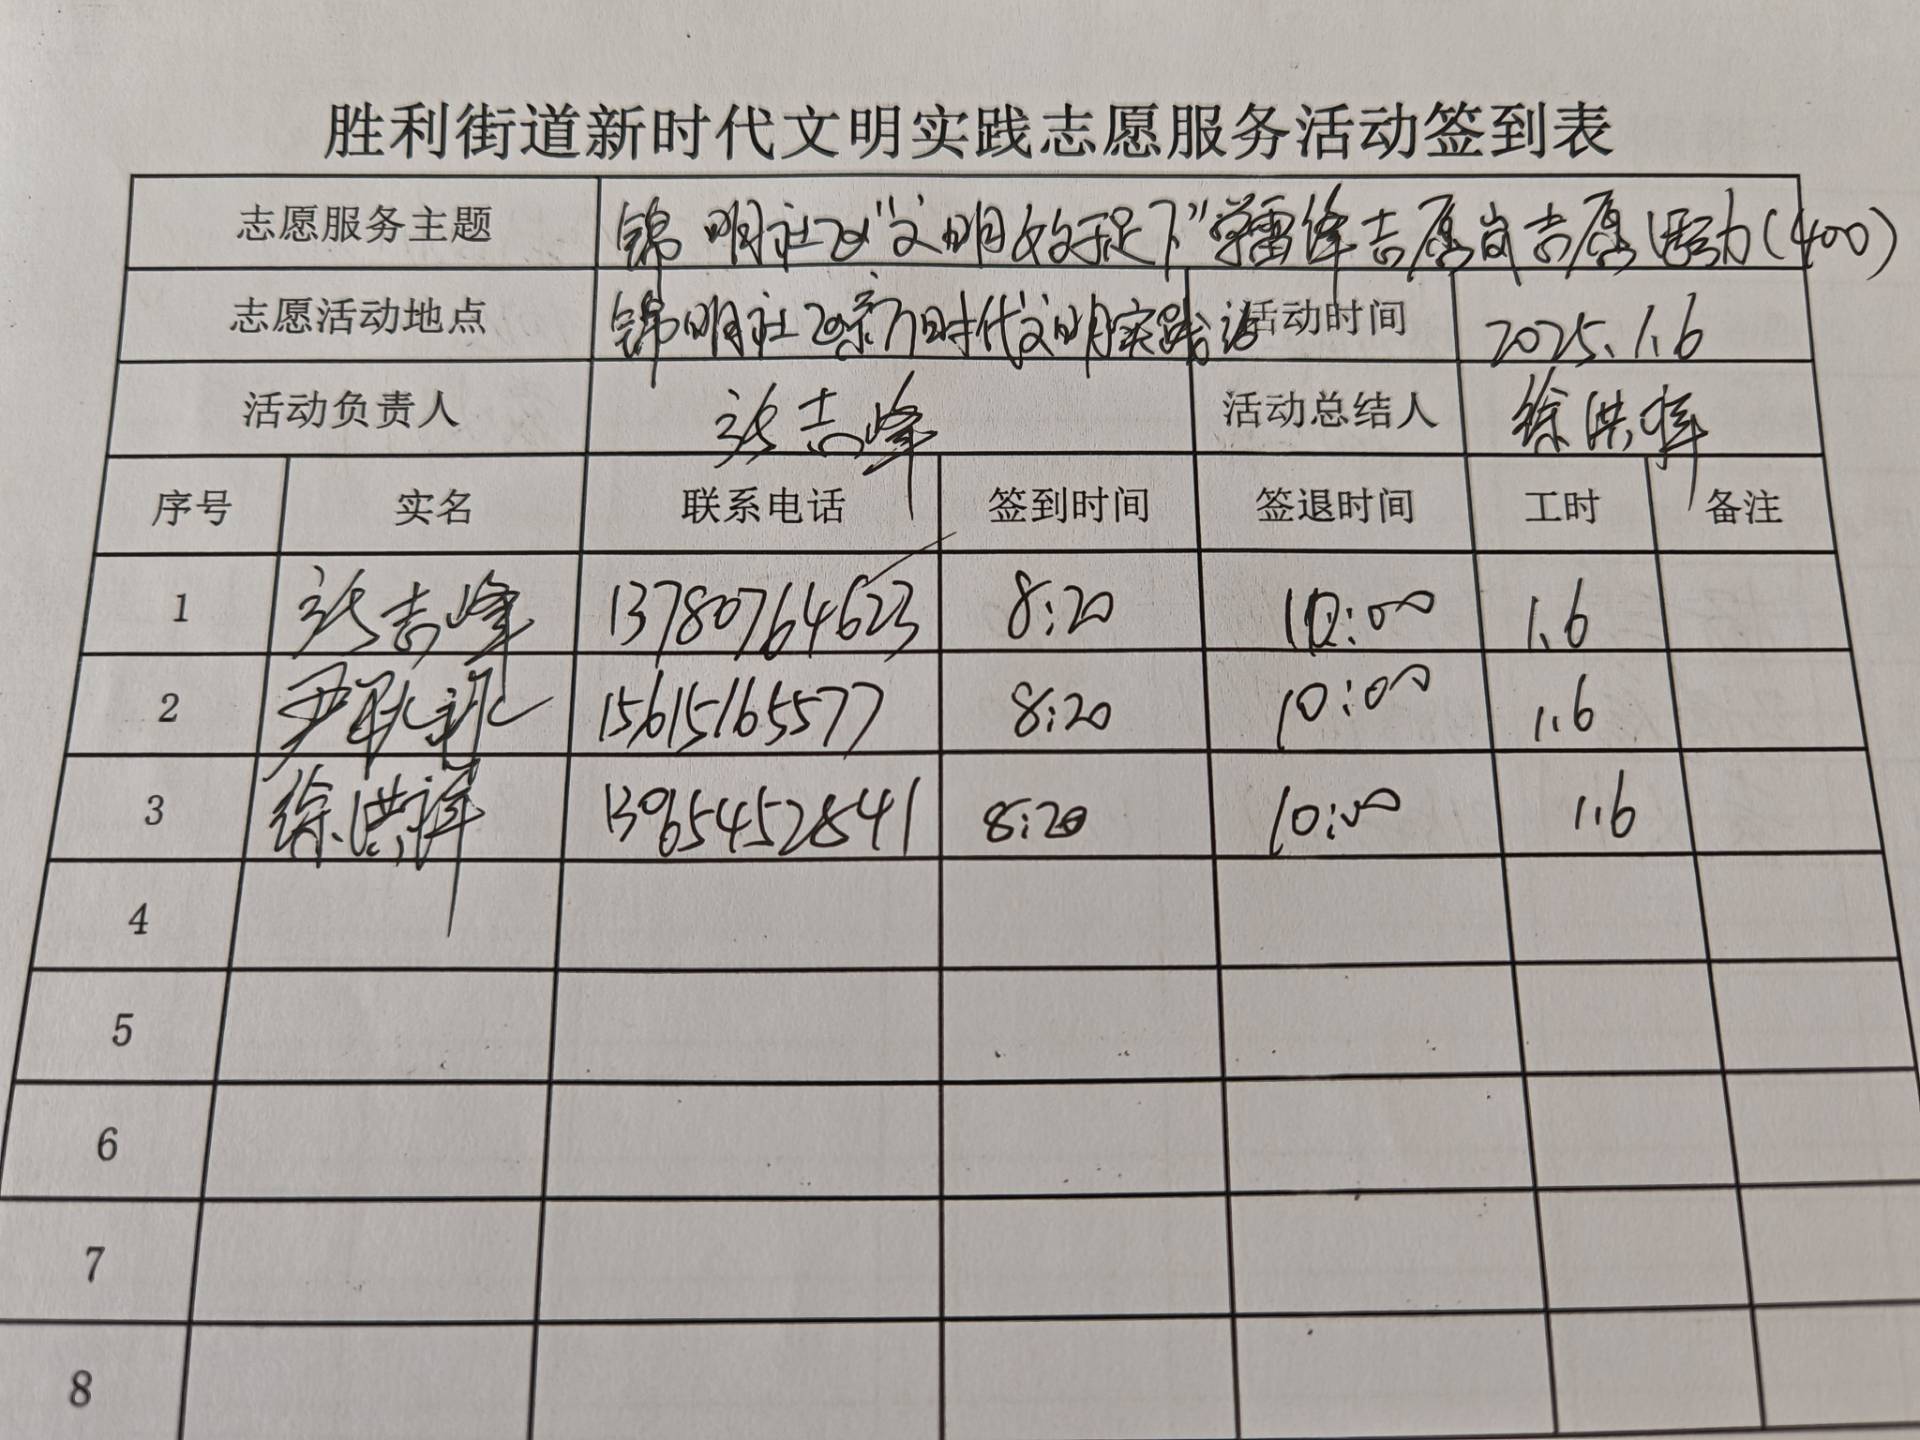 胜利街道新时代文明实践志愿服务活动签到表
志愿服务主题 锦明社区“文明始于足下”学雷锋志愿岗志愿活动(400)
志愿活动地点 锦明社区新时代文明实践站 活动时间 2025.1.6
活动负责人 张志峰 活动总结人 徐洪祥
序号 实名 联系电话 签到时间 签退时间 工时 备注
1 张志峰 13780764623 8:20 10:00 1.6
2 尹 15615165577 8:20 10:00 1.6
3 徐洪祥 13965452841 8:20 10:00 1.6
4
5
6
7
8